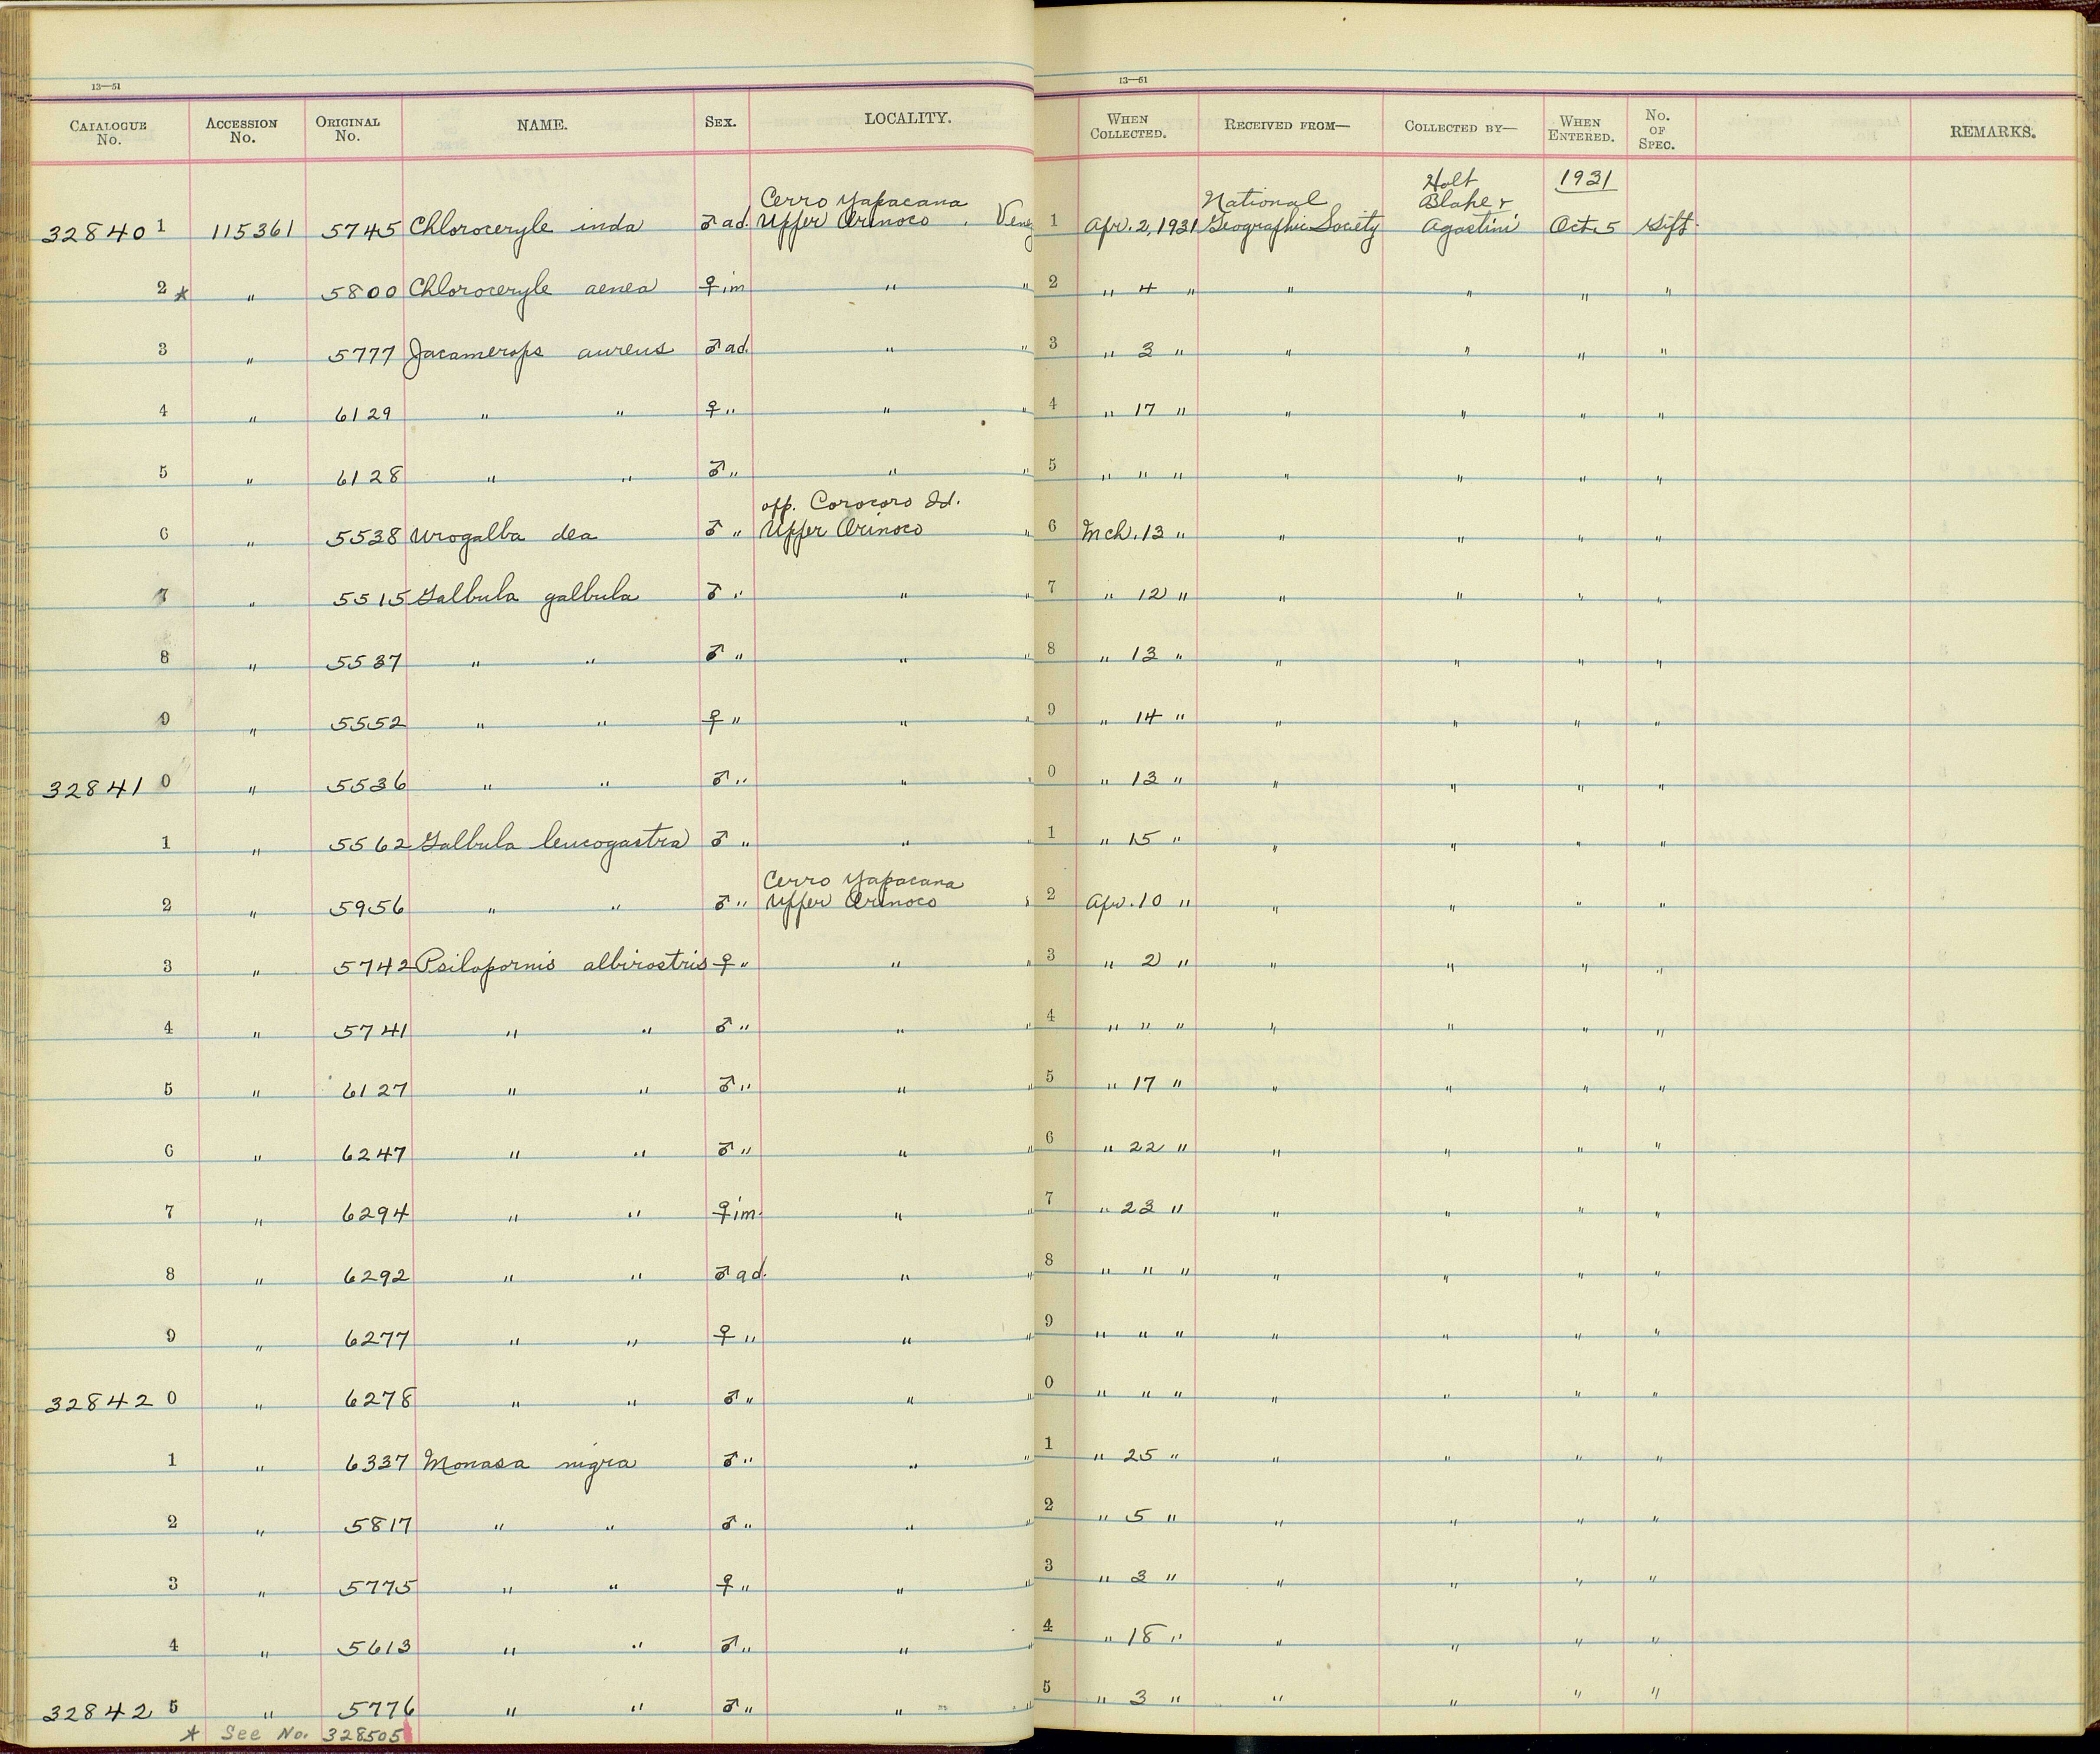 13—51
13—51
CATALOGUE No. ACCESSION No. ORIGINAL No. NAME. SEX. LOCALITY. WHEN COLLECTED. RECEIVED FROM— COLLECTED BY— WHEN ENTERED. No. OF SPEC. REMARKS.
Cerro Yapacana National Holt Blake & 1931
32840 1 115361 5745 Chloroceryle inda ♂ ad. Upper Orinoco, Venez 1 Apr. 2, 1931 Geographic Society Agostini Oct. 5 Gift.
2 * " 5800 Chloroceryle aenea ♀ im " " 2 " 4 " " " " "
3 " 5777 Jacamerops aureus ♂ ad. " " 3 " 3 " " " " "
4 " 6129 " " ♀ " " " 4 " 17 " " " " "
5 " 6128 " " ♂ " " " 5 " " " " " " "
opp. Corocoro Id.
6 " 5538 Urogalba dea ♂ " Upper Orinoco " 6 Mch. 13 " " " " "
7 " 5515 Galbula galbula ♂ " " " 7 " 12 " " " " "
8 " 5537 " " ♂ " " " 8 " 13 " " " " "
9 " 5552 " " ♀ " " " 9 " 14 " " " " "
32841 0 " 5536 " " ♂ " " " 0 " 13 " " " " "
1 " 5562 Galbula leucogastra ♂ " " " 1 " 15 " " " " "
Cerro Yapacana
2 " 5956 " " ♂ " Upper Orinoco " 2 Apr. 10 " " " " "
3 " 5742 Psilopornis albirostris ♀ " " " 3 " 2 " " " " "
4 " 5741 " " ♂ " " " 4 " " " " " " "
5 " 6127 " " ♂ " " " 5 " 17 " " " " "
6 " 6247 " " ♂ " " " 6 " 22 " " " " "
7 " 6294 " " ♀ im. " " 7 " 23 " " " " "
8 " 6292 " " ♂ ad. " " 8 " " " " " " "
9 " 6277 " " ♀ " " " 9 " " " " " " "
32842 0 " 6278 " " ♂ " " " 0 " " " " " " "
1 " 6337 Monasa nigra ♂ " " " 1 " 25 " " " " "
2 " 5817 " " ♂ " " " 2 " 5 " " " " "
3 " 5775 " " ♀ " " " 3 " 3 " " " " "
4 " 5613 " " ♂ " " " 4 " 18 " " " " "
32842 5 " 5776 " " ♂ " " " 5 " 3 " " " " "
* See No. 328505